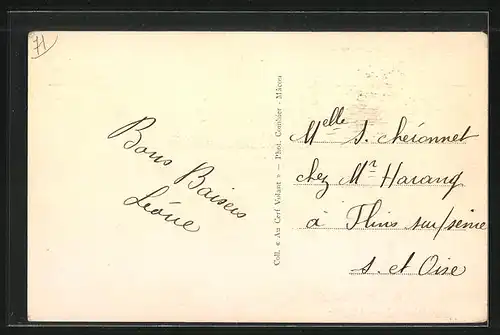 71
Bons Baisers
Léone
Coll. « Au Cerf Volant » — Phot. Combier - Mâcon
Melle S. Chéronnet
chez Mr Harang
à Flins sur/seine
S. et Oise